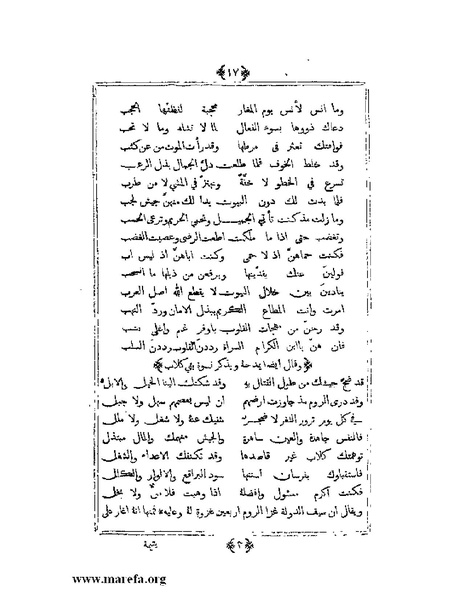 ﴿١٧﴾
وما انس لا أنس يوم المغار محجبة لفظتها الحجب
دعاك ذووها بسوء الفعال لما لا تشاء وما لا تحب
فوافتك تعثر في مرطها وقد رأت الموت من عن كثب
وقد خلط الخوف لما طلعت دل الجمال بذل الرعب
تسرع في الخطو لا خفة وتهتز في المشي لا من طرب
فلما بدت لك دون البيوت بدا لك منهن جيش لجب
وما زلت مذ كنت تأتي الجميل وتحمي الحريم وترعى الحسب
وتغضب حتى اذا ما ملكت اطعت الرضى وعصيت الغضب
فكنت حماهن اذ لا حمى وكنت اباهن اذ ليس اب
فولين عنك يفدينها ويرفعن من ذيلها ما انسحب
ينادين بين خلال البيوت لا يقطع الله اصل العرب
امرت وانت المطاع الكريم ببذل الامان ورد النهب
وقد رحن من مهجات القلوب باوفر غنم واغلى نشب
فان هن يا ابن الكرام السراة رددن القلوب رددن السلب
﴿وقال ايضا يمدحه ويذكر نسوة بني كلاب﴾
قد ضج جيشك من طول القتال به وقد شكتك الينا الخيل والابل
وقد درى الروم مذ جاورت ارضهم ان ليس يعصمهم سهل ولا جبل
في كل يوم تزور الثغر لا ضجر يثنيك عنه ولا شغل ولا ملل
فالنفس جاهدة والعين ساهرة والجيش منهمك والمال مبتذل
توهمتك كلاب غير قاصدها وقد تكنفك الاعداء والشغل
فاستقبلوك بفرسان اسنتها سود البراقع والاكوار والكلل
فكنت اكرم مسئول وافضله اذا وهبت فلا منّ ولا بخل
ويقال ان سيف الدولة غزا الروم اربعين غزوة له وعليه فمنها انه اغار على
﴿٢﴾
يتيمة
www.marefa.org